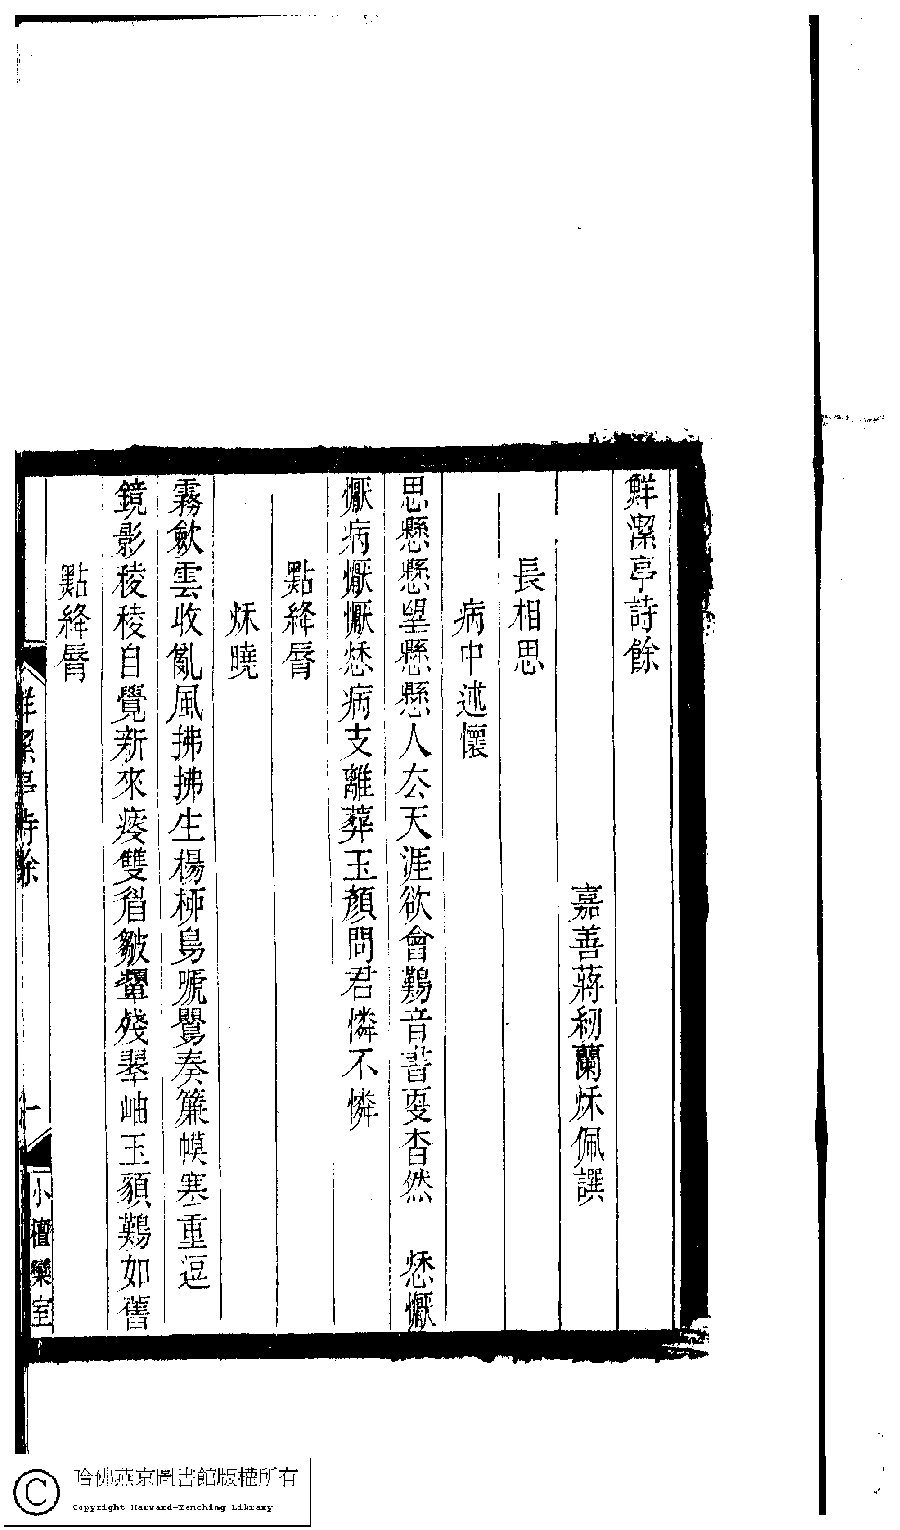 鮮潔亭詩餘
嘉善蔣紉蘭秌佩譔
長相思
病中述懷
思懸懸望懸懸人厺天涯欲會鷬音書更杳然　愁懨
懨病懨懨愁病支離葬玉顏問君憐不憐
點絳脣
秌曉
霧斂雲收亂風拂拂生楊柳鳥號嬰奏簾幙塞重逗
鏡影稜稜自覺新來瘦雙眉皺黛殘翠岫玉䫉鷬如舊
點絳脣
鮮潔亭詩餘
一
小檀欒室
哈佛燕京圖書館版權所有
Copyright Harvard-Yenching Library